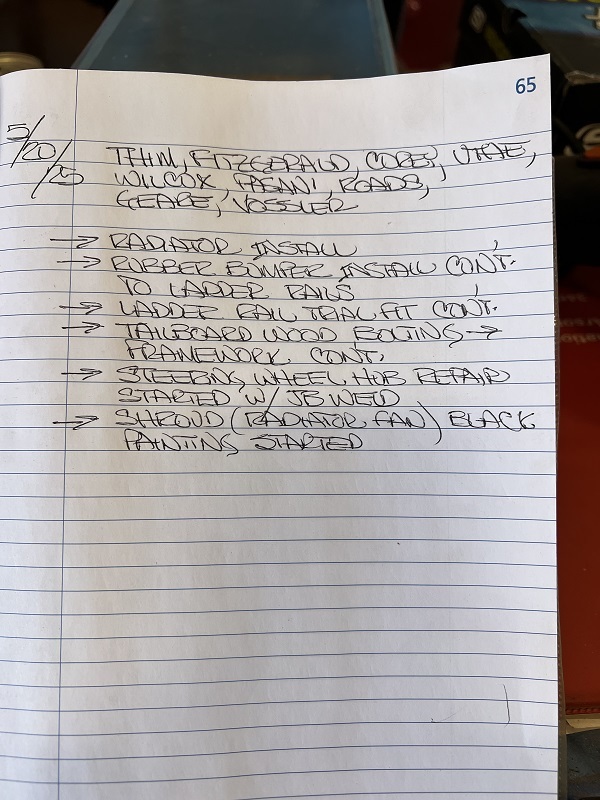 65
5/20/25
THIM, FITZGERALD, COBB, VITAE,
WILCOX, PAGANI, ROADS,
GEARE, VOSSLER
→ RADIATOR INSTALL
→ RUBBER BUMPER INSTALL CONT.
TO LADDER RAILS
→ LADDER RAIL TRIAL FIT CONT.
→ TAILBOARD WOOD BOLTING →
FRAMEWORK CONT.
→ STEERING WHEEL HUB REPAIR
STARTED W/ JB WELD
→ SHROUD (RADIATOR FAN) BLACK
PAINTING STARTED